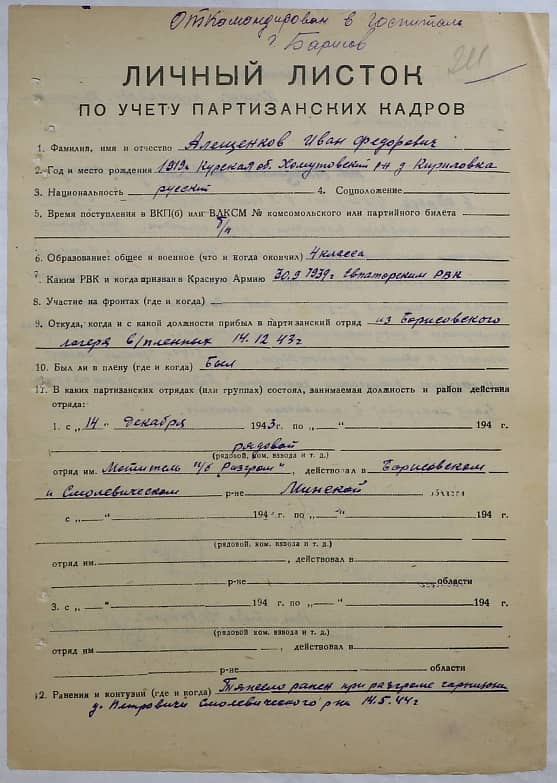 Откомандирован в госпиталь
г. Барисов
ЛИЧНЫЙ ЛИСТОК
ПО УЧЕТУ ПАРТИЗАНСКИХ КАДРОВ
1. Фамилия, имя и отчество Алещенков Иван Федорович
2. Год и место рождения 1919г Курская об. Хомутовский рн д. Кириловка
3. Национальность русский 4. Соцположение
5. Время поступления в ВКП(б) или ВЛКСМ № комсомольского или партийного билета
б/п
6. Образование: общее и военное (что и когда окончил) 4 класса
7. Каким РВК и когда призван в Красную Армию 30.9 1939г Евпаторским РВК
8. Участие на фронтах (где и когда)
9. Откуда, когда и с какой должности прибыл в партизанский отряд из Борисовского
лагеря в/пленных 14.12 43 г
10. Был ли в плену (где и когда) Был
11. В каких партизанских отрядах (или группах) состоял, занимаемая должность и район действия
отряда:
1. с „14" декабря 1943г. по „ " 194 г.
рядовой
(рядовой, ком. взвода и т. д.)
отряд им. Мститель п/б Разгром", действовал в Борисовском
и Смолевическом р-не Минской области
с „ " 194 г. по „ " 194 г.
(рядовой, ком. взвода и т. д.)
отряд им. , действовал в
р-не области
3. с „ " 194 г. по „ " 194 г.
(рядовой, ком. взвода и т. д.)
отряд им , действовал в
р-не области
12. Ранения и контузии (где и когда) Тяжело ранен при разгроме гарнизона
д. Петровичи Смолевического р-на 14.5.44 г